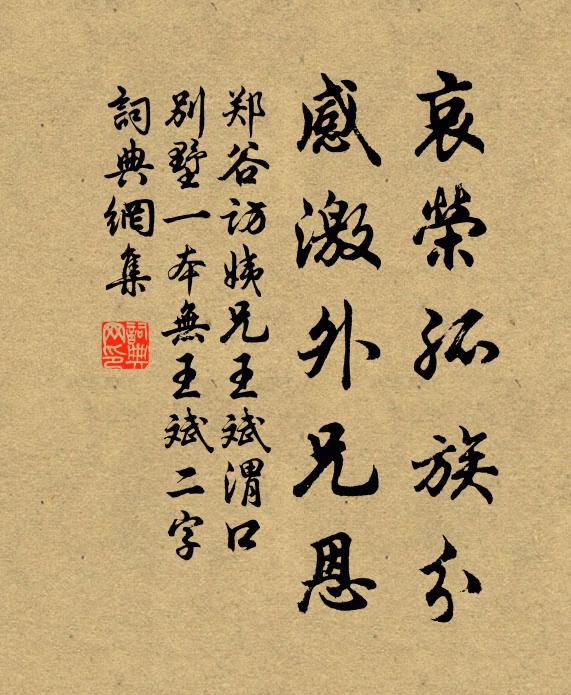 哀榮孤族分
感激外兄恩
郑谷访姨兄王斌渭口
别墅一本無王斌二字
詞典網集
詞典网印